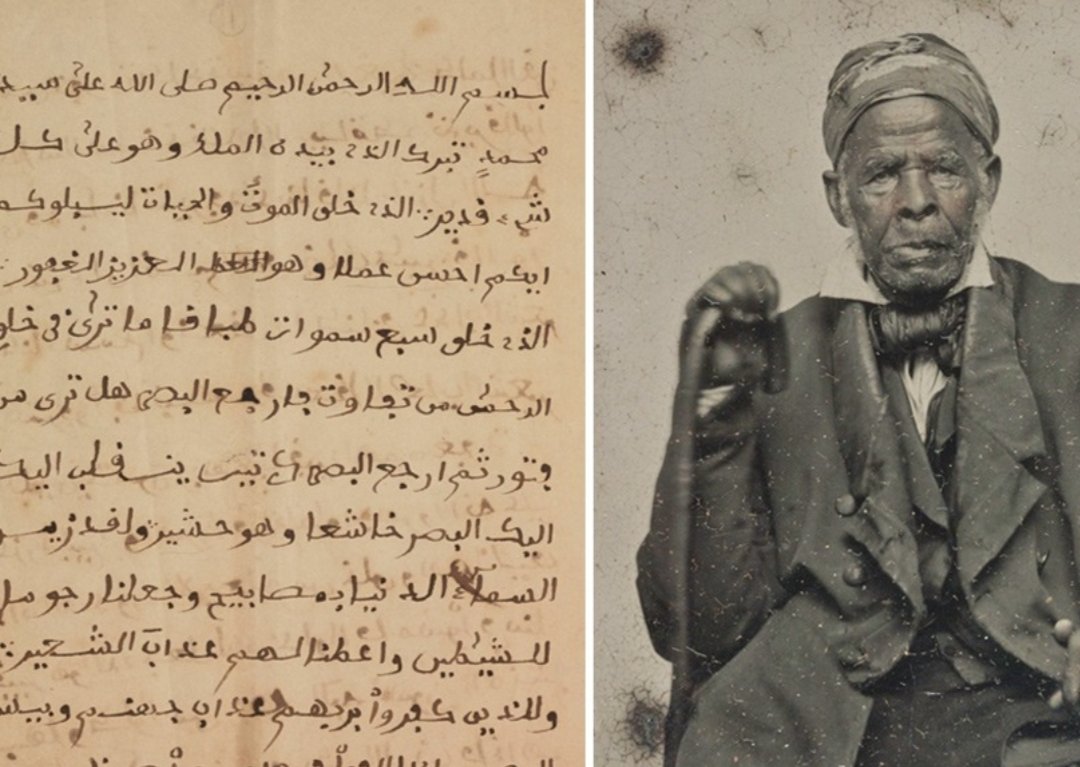 بسم الله الرحمن الرحيم صلى الله على سيد
محمد تبرك الذي بيده الملك وهو على كل
شيء قدير الذي خلق الموت والحيات ليسبلوكم
ايكم احسن عملا وهو العزيز الغفور
الذي خلق سبع سموات طباقا ما ترى في خلق
الرحمن من تفاوت فارجع البصر هل ترى من
فتور ثم ارجع البصر ينسقلب اليك
اليك البصر خاشعا وهو حشير ولقد زين
السماء الدنيا بمصابيح وجعلنا رجوما
للشيطين واعطنا لهم عذاب الشعير
وللذين كفروا بربهم عذاب جهنم وبيس